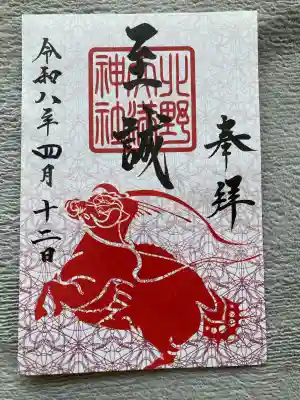 奉拝
至誠
北野天満神社
令和八年四月十二日